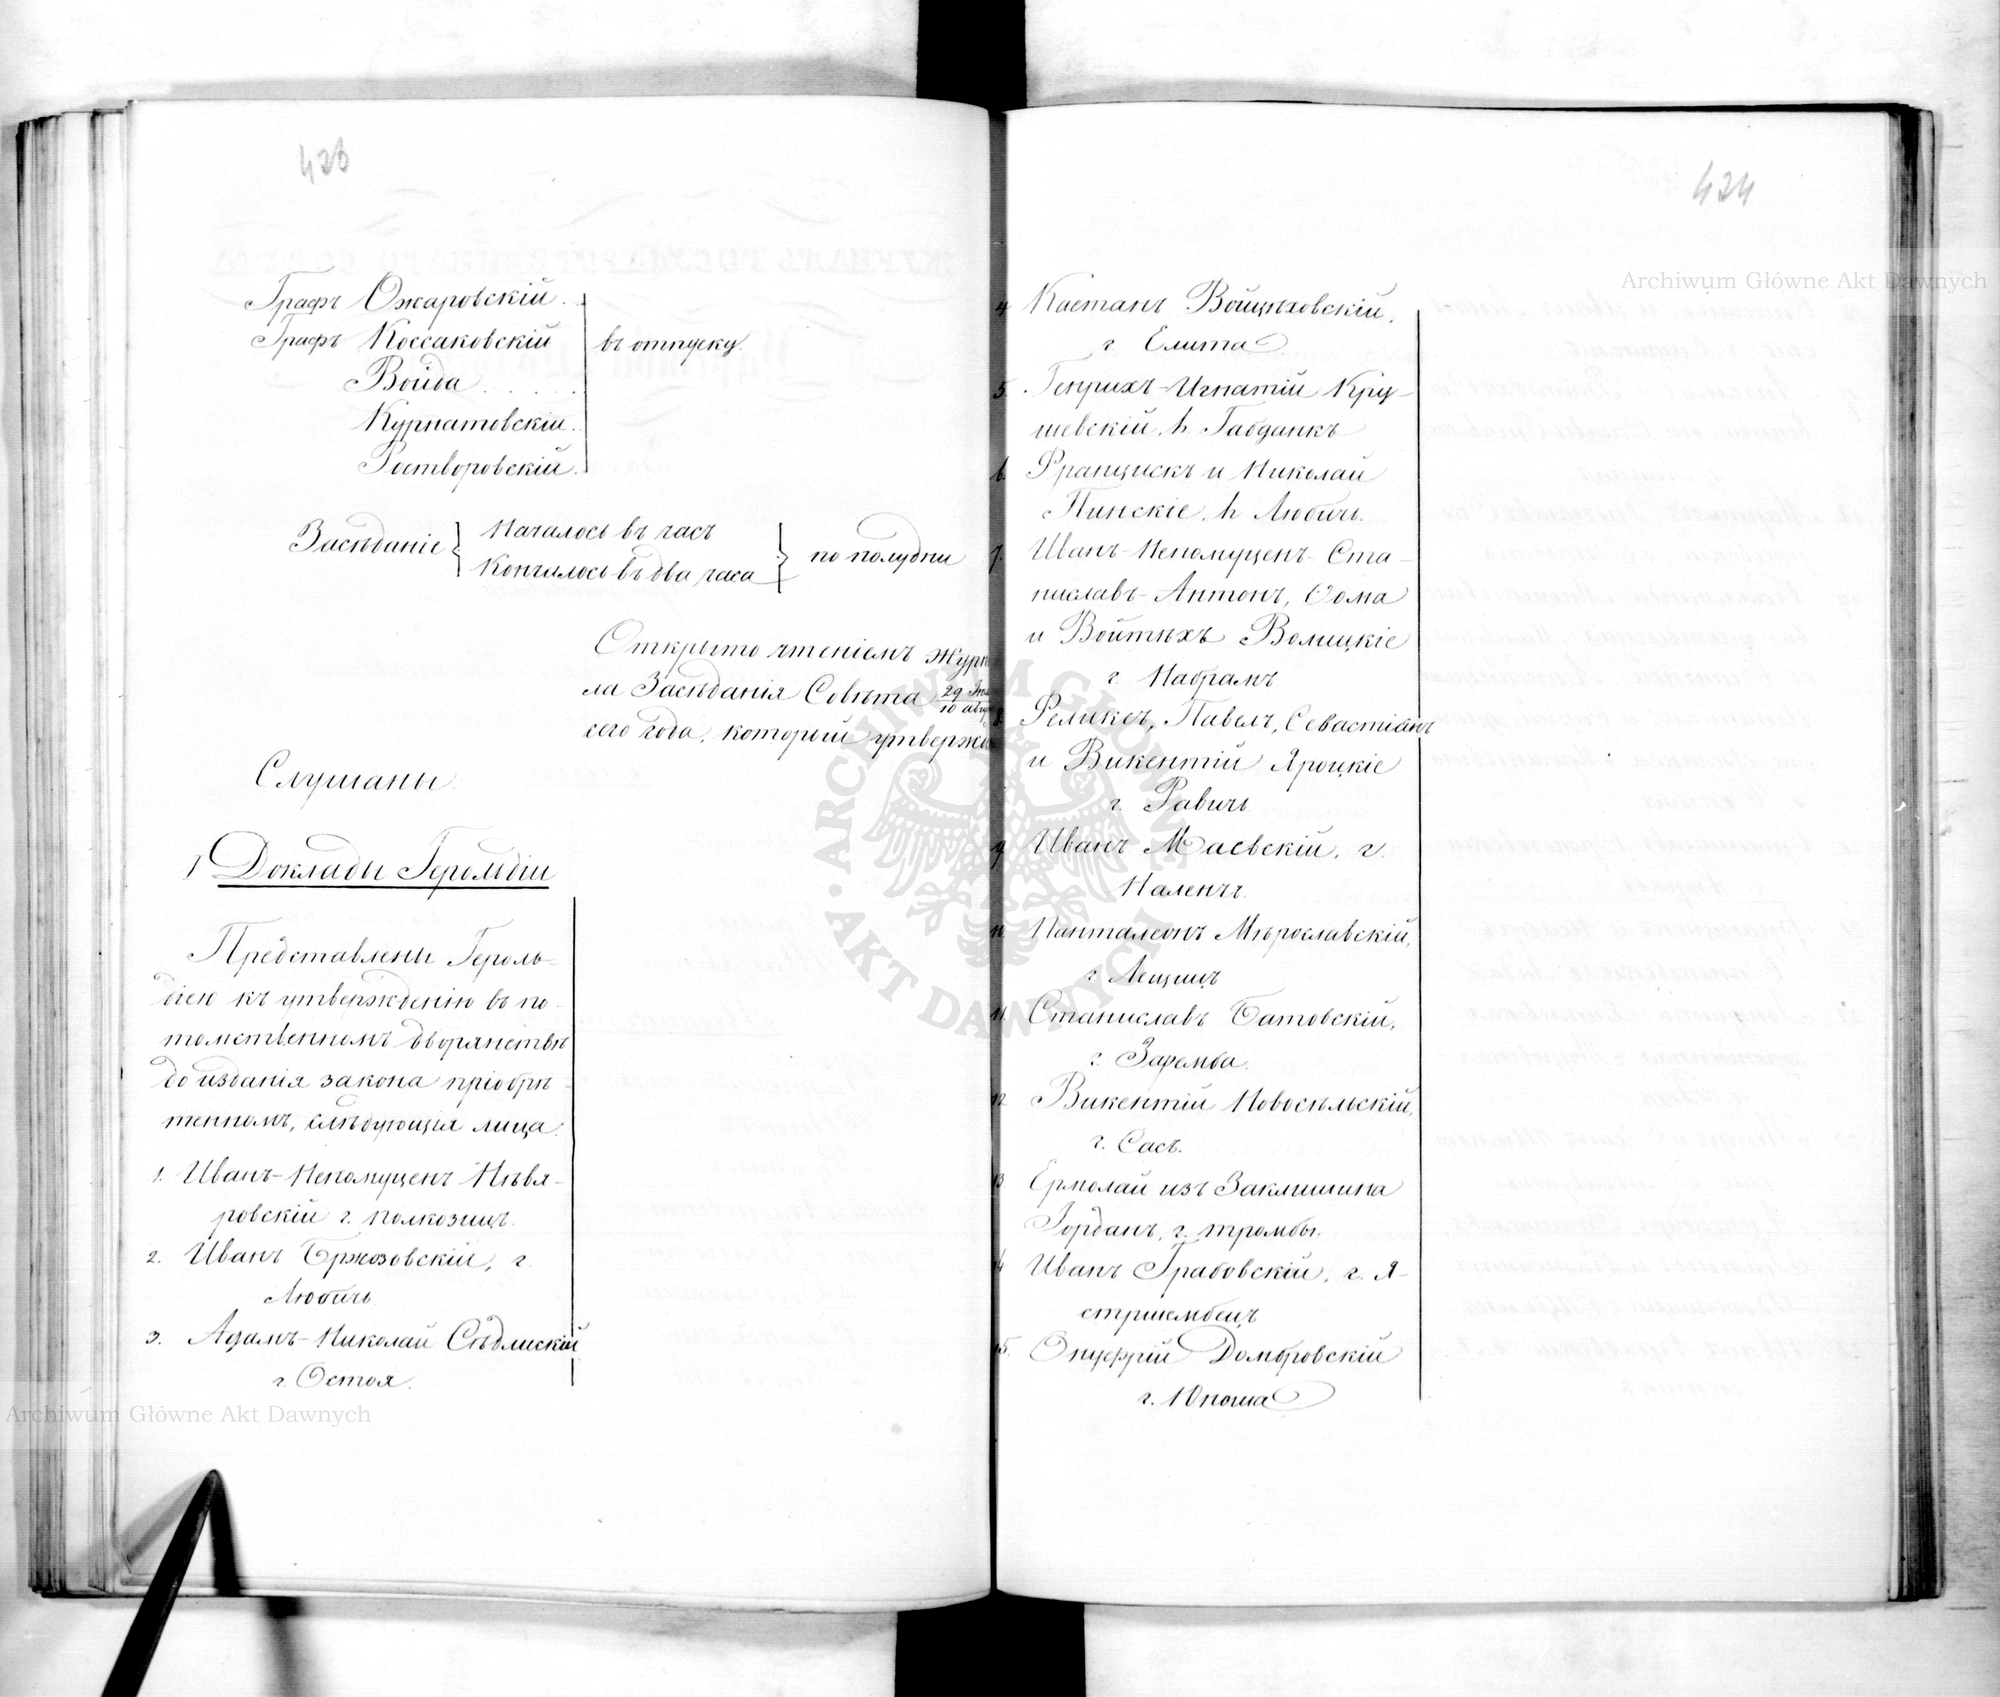 423
Графъ Ожаровскій.
Графъ Коссаковскій
въ отпуску.
Война . . . .
Курнатовскій.
Ростворовскій.
Засѣданіе
Началось въ часъ
Кончилось въ два часа
по полудни
Открыто чтеніемъ журна
ла Засѣданія Совѣта 29 Іюл 10 авгу
сего года, который утвержд
Слушаны
I Доклады Герольдіи
Представлены Героль-
діею къ утвержденію въ по-
томственномъ дворянствѣ
до изданія закона пріобрѣ-
тенномъ, слѣдующія лица:
1. Иванъ-Непомуценъ Нѣвя-
ровскій г. Полкозицъ.
2. Иванъ Бржозовскій, г.
Любичъ
3. Адамъ-Николай Сѣдлискій
г. Остоя.
424
4 Каетанъ Войцѣховскій,
г. Елита
5. Генрихъ-Игнатій Кру-
шевскій, h Габданкъ
6. Францискъ и Николай
Пинскіе, h Любичъ.
7. Иванъ-Непомуценъ-Ста-
ниславъ-Антонъ, Ѳома
и Войтѣхъ Волицкіе
г. Набрамъ
8. Феликсъ, Павелъ, Севастіанъ
и Викентій Яроцкіе
г. Равичъ
9 Иванъ Маевскій, г.
Наленчъ.
10 Панталеонъ Мѣрославскій,
г. Лещицъ
11. Станиславъ Батовскій,
г. Заремба.
12 Викентій Новосѣльскій,
г. Сасъ.
13 Ермолай изъ Заклишина
Іорданъ, г. Тромбы.
14 Иванъ Грабовскій, г. Я-
стршембецъ
15. Онуфрій Домбровскій
г. Юноша
Archiwum Główne Akt Dawnych
Archiwum Główne Akt Dawnych
ARCHIWUM GŁÓWNE AKT DAWNYCH